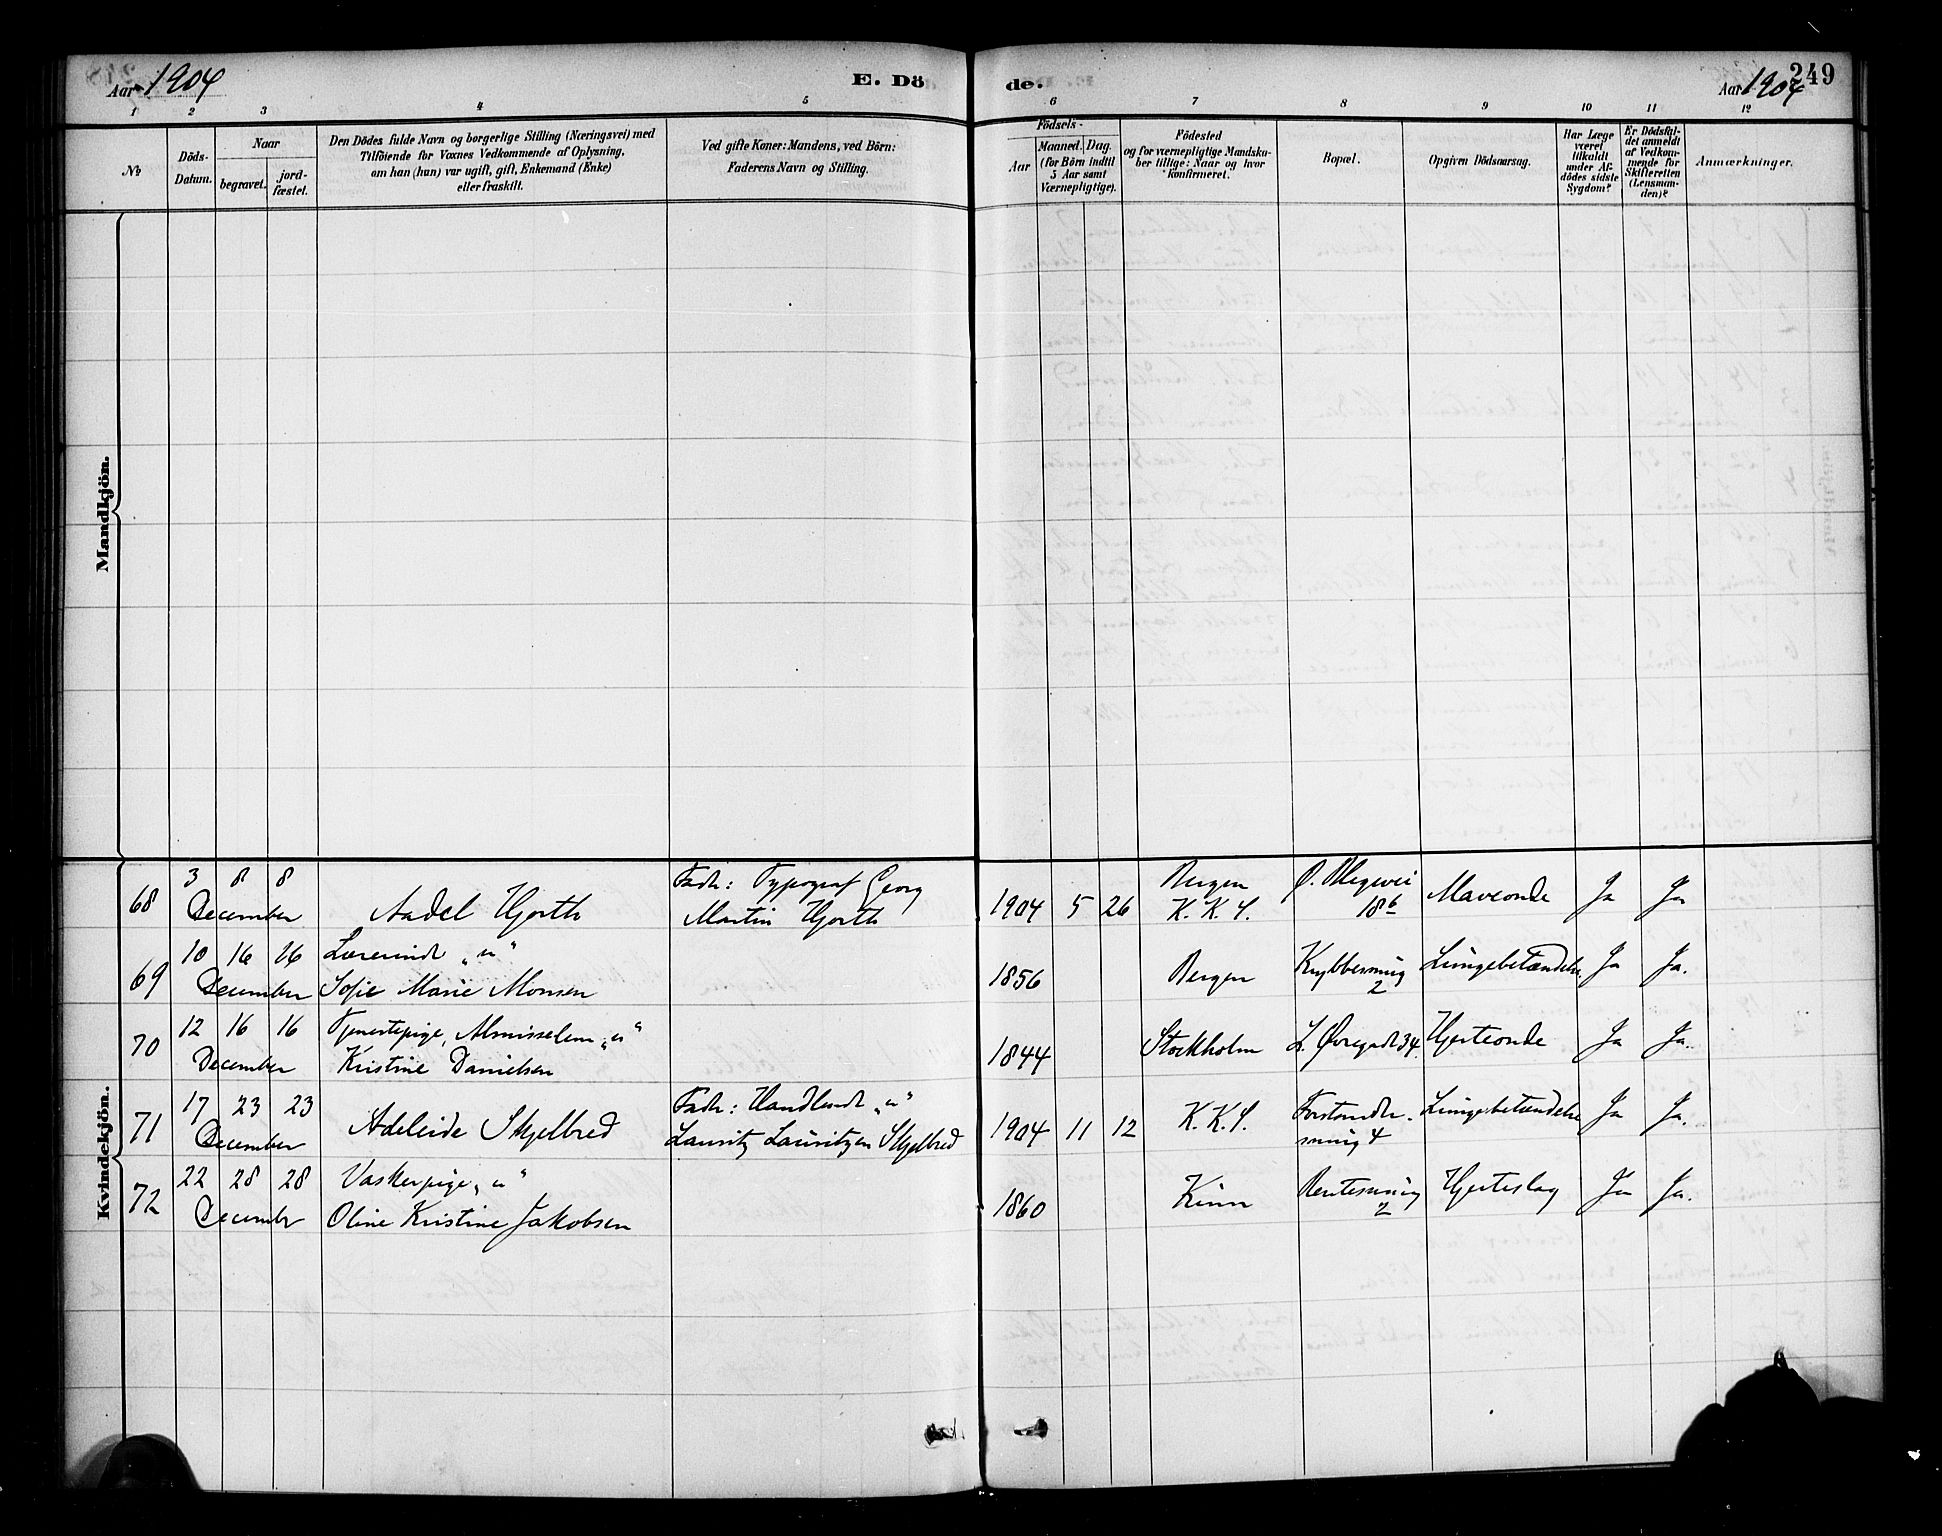 Aar 1904
E. Döde.
Aar 1904
249
1 2 3 4 5 6 7 8 9 10 11 12
№
Döds-Datum.
Naar
begravet.
jord-fæstet.
Den Dödes fulde Navn og borgerlige Stilling (Næringsvei) med
Tilföiende for Voxnes Vedkommende af Oplysning,
om han (hun) var ugift, gift, Enkemand (Enke)
eller fraskilt.
Ved gifte Koner: Mandens, ved Börn:
Faderens Navn og Stilling.
Födsels-
Aar
Maaned. Dag.
(for Börn indtil
5 Aar samt
Værnepligtige).
Födested
og for værnepligtige Mandska-
ber tillige: Naar og hvor
konfirmeret.
Bopæl.
Opgiven Dödsaarsag.
Har Læge
været
tilkaldt
under Af-
dödes sidste
Sygdom?
Er Dödsfal-
det anmeldt
af Vedkom-
mende for
Skifteretten
(Lensman-
den)?
Anmærkninger.
Mandkjön.
Kvindekjön.
3 8 8 Fadr: Typograf Georg Bergen
68 December Aadel Hjorth Martin Hjorth 1904 5 26 K. K. S. 18 6 Maveonde Ja Ja
10 16 16 Lærerinde „u“
69 December Sofie Marie Monsen 1856 Bergen Krybbesmug 2 Lungebetændelse Ja Ja.
12 16 16 Tjenestepige, Almisselem „u“
70 December Kristine Danielsen 1844 Stockholm L. Øvregade 34. Hjerteonde Ja Ja.
17 23 23 Fadr: Handlende „u“
71 December Adeleide Skjelbred Lauritz Lauritzen Skjelbred 1904 11 12 K. K. S. Forstander-
smug 4 Lungebetændelse Ja Ja.
22 28 28 Vaskerpige „u“
72 December Oline Kristine Jakobsen 1860 Kinn Rentesmug 2 Hjerteslag Ja Ja.